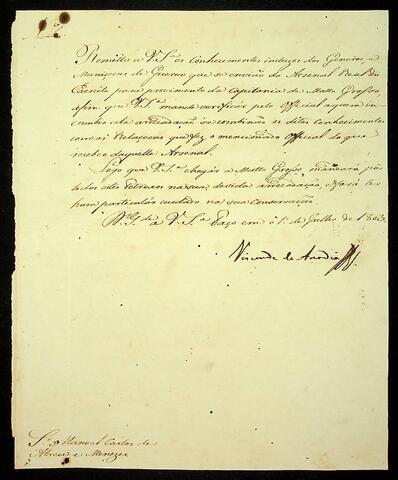 Remetto a V. S.ª os Conhecimentos incluzos dos Generos, e
Muniçoens de Guerra que se envião do Arsenal Real do
Exercito para provimento da Capitania de Matto Grosso,
afim que V. S.ª mande verificar pelo Official a quem in-
cumbio esta arrecadação se combinão os ditos Conhecimentos
com as Relaçoens que fez o mencionado Official do que
recebeo daquelle Arsenal.
Logo que V. S.ª chegar a Matto Grosso, mandará pôr
todos estes Petrexos na sua devida arrecadação, e fará ter
hum particular cuidado na sua Conservação.
D.s G.de a V. S.ª Paço em 1.º de Julho de 1803
Visconde de Anadia
S.r Manoel Carlos de
Abreu e Menezes